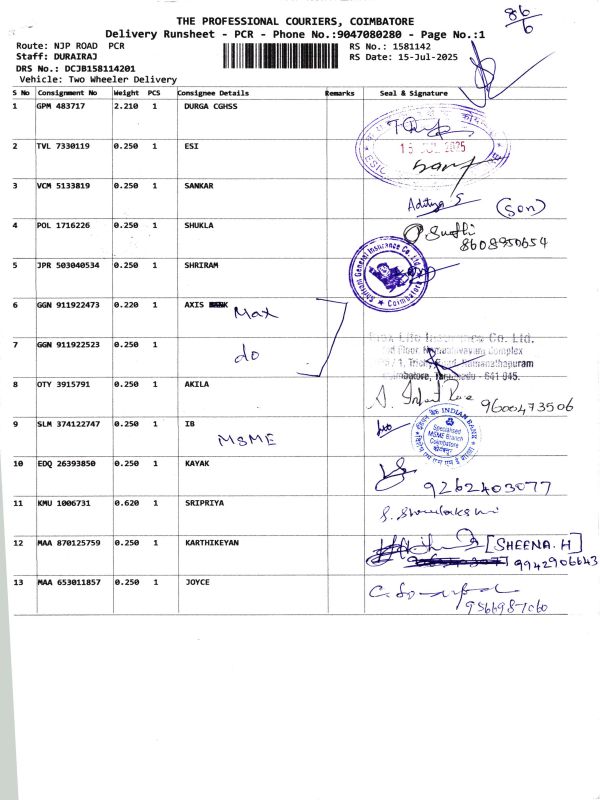 86
6
THE PROFESSIONAL COURIERS, COIMBATORE
Delivery Runsheet - PCR - Phone No.:9047080280 - Page No.:1
Route: NJP ROAD PCR
RS No.: 1581142
Staff: DURAIRAJ
RS Date: 15-Jul-2025
DRS No.: DCJB158114201
Vehicle: Two Wheeler Delivery
S No Consignment No Weight PCS Consignee Details Remarks Seal & Signature
1 GPM 483717 2.210 1 DURGA CGHSS
15 JUL 2025
ESIC
2 TVL 7330119 0.250 1 ESI
3 VCM 5133819 0.250 1 SANKAR
Aditya S (Son)
4 POL 1716226 0.250 1 SHUKLA
Sruthi
8608950654
5 JPR 503040534 0.250 1 SHRIRAM
Shriram General Insurance Co. Ltd.
Coimbatore
6 GGN 911922473 0.220 1 AXIS
Max
7 GGN 911922523 0.250 1
do
Max Life Insurance Co. Ltd.
Floor, Complex
/ 1, Trichy Road, Ramanathapuram
Coimbatore, Tamilnadu - 641 045.
8 OTY 3915791 0.250 1 AKILA
9600473506
9 SLM 374122747 0.250 1 IB
MSME
INDIAN BANK
Specialised
MSME Branch
Coimbatore
10 EDQ 26393850 0.250 1 KAYAK
9262403077
11 KMU 1006731 0.620 1 SRIPRIYA
12 MAA 870125759 0.250 1 KARTHIKEYAN
[SHEENA.H]
9942906643
13 MAA 653011857 0.250 1 JOYCE
9566987060